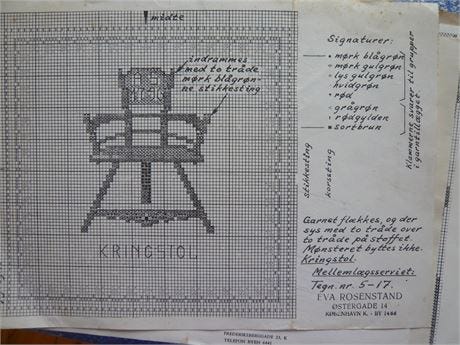 midte
indrammes
med to tråde
mørk blågrøn-
ne stikkesting
KRINGSTOL
Signaturer:
mørk blågrøn
mørk gulgrøn
lys gulgrøn
hvidgrøn
rød
grågrøn
rødgylden
sortbrun
Klammerne svarer til grupper
i garntillægget.
stikkesting
korssting
Garnet flækkes, og der
sys med to tråde over
to tråde på stoffet.
Mønsteret byttes ikke.
Kringstol.
Mellemlægsserviet:
Tegn. nr. 5-17.
EVA ROSENSTAND
ØSTERGADE 14
KØBENHAVN K. - BY 1486
FREDERIKSBERGGADE 23, K